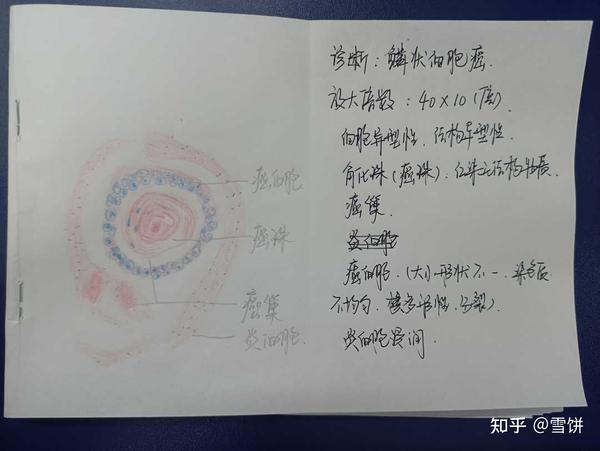 癌细胞
癌珠
癌巢
炎细胞.
诊断：鳞状细胞癌.
放大倍数：40×10（倍）.
细胞异型性，结构异型性.
角化珠（癌珠）.红染无结构物质
癌巢.
炎细胞
癌细胞.（大小形状不一.染色质
不均匀.核多形性.分裂）.
炎细胞浸润.
知乎 @雪饼